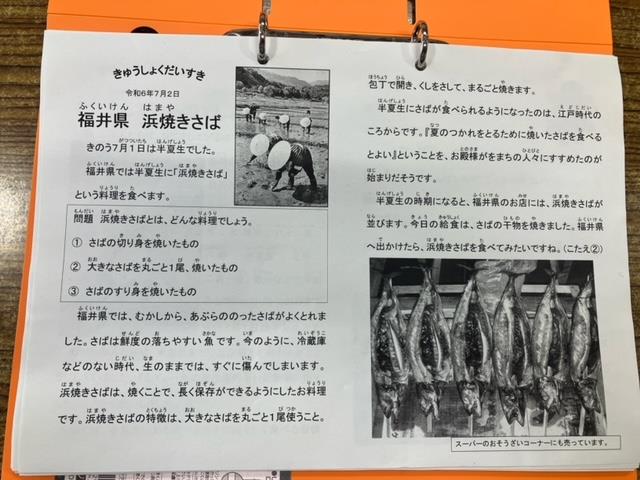 きゅうしょくだいすき
令和6年7月2日
福井県 浜焼きさば
きのう7月1日は半夏生でした。
福井県では半夏生に「浜焼きさば」
という料理を食べます。
問題 浜焼きさばとは、どんな料理でしょう。
① さばの切り身を焼いたもの
② 大きなさばを丸ごと1尾、焼いたもの
③ さばのすり身を焼いたもの
福井県では、むかしから、あぶらののったさばがよくとれま
した。さばは鮮度の落ちやすい魚です。今のように、冷蔵庫
などのない時代、生のままでは、すぐに傷んでしまいます。
浜焼きさばは、焼くことで、長く保存ができるようにしたお料理
です。浜焼きさばの特徴は、大きなさばを丸ごと1尾使うこと。
包丁で開き、くしをさして、まるごと焼きます。
半夏生にさばが食べられるようになったのは、江戸時代の
ころからです。『夏のつかれをとるために焼いたさばを食べる
とよい』ということを、お殿様がまちの人々にすすめたのが
始まりだそうです。
半夏生の時期になると、福井県のお店には、浜焼きさばが
並びます。今日の給食は、さばの干物を焼きました。福井県
へ出かけたら、浜焼きさばを食べてみたいですね。(こたえ②)
スーパーのおそうざいコーナーにも売っています。